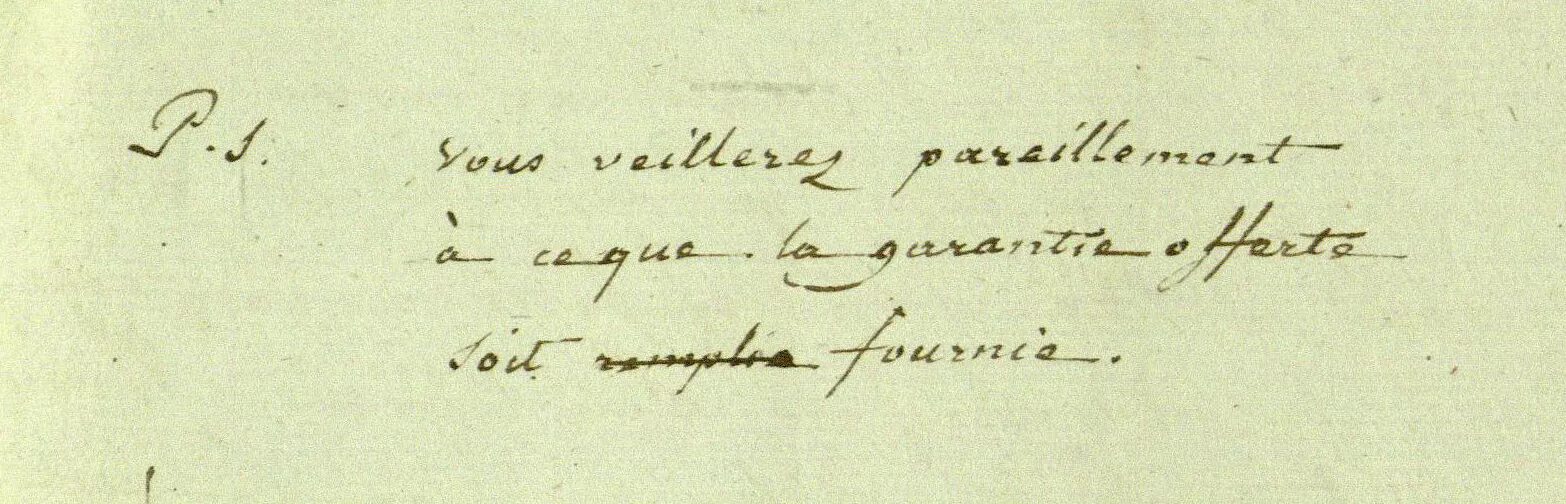 P.S. Vous veillerez pareillement
à ce que la garantie offerte
soit remplie fournie.